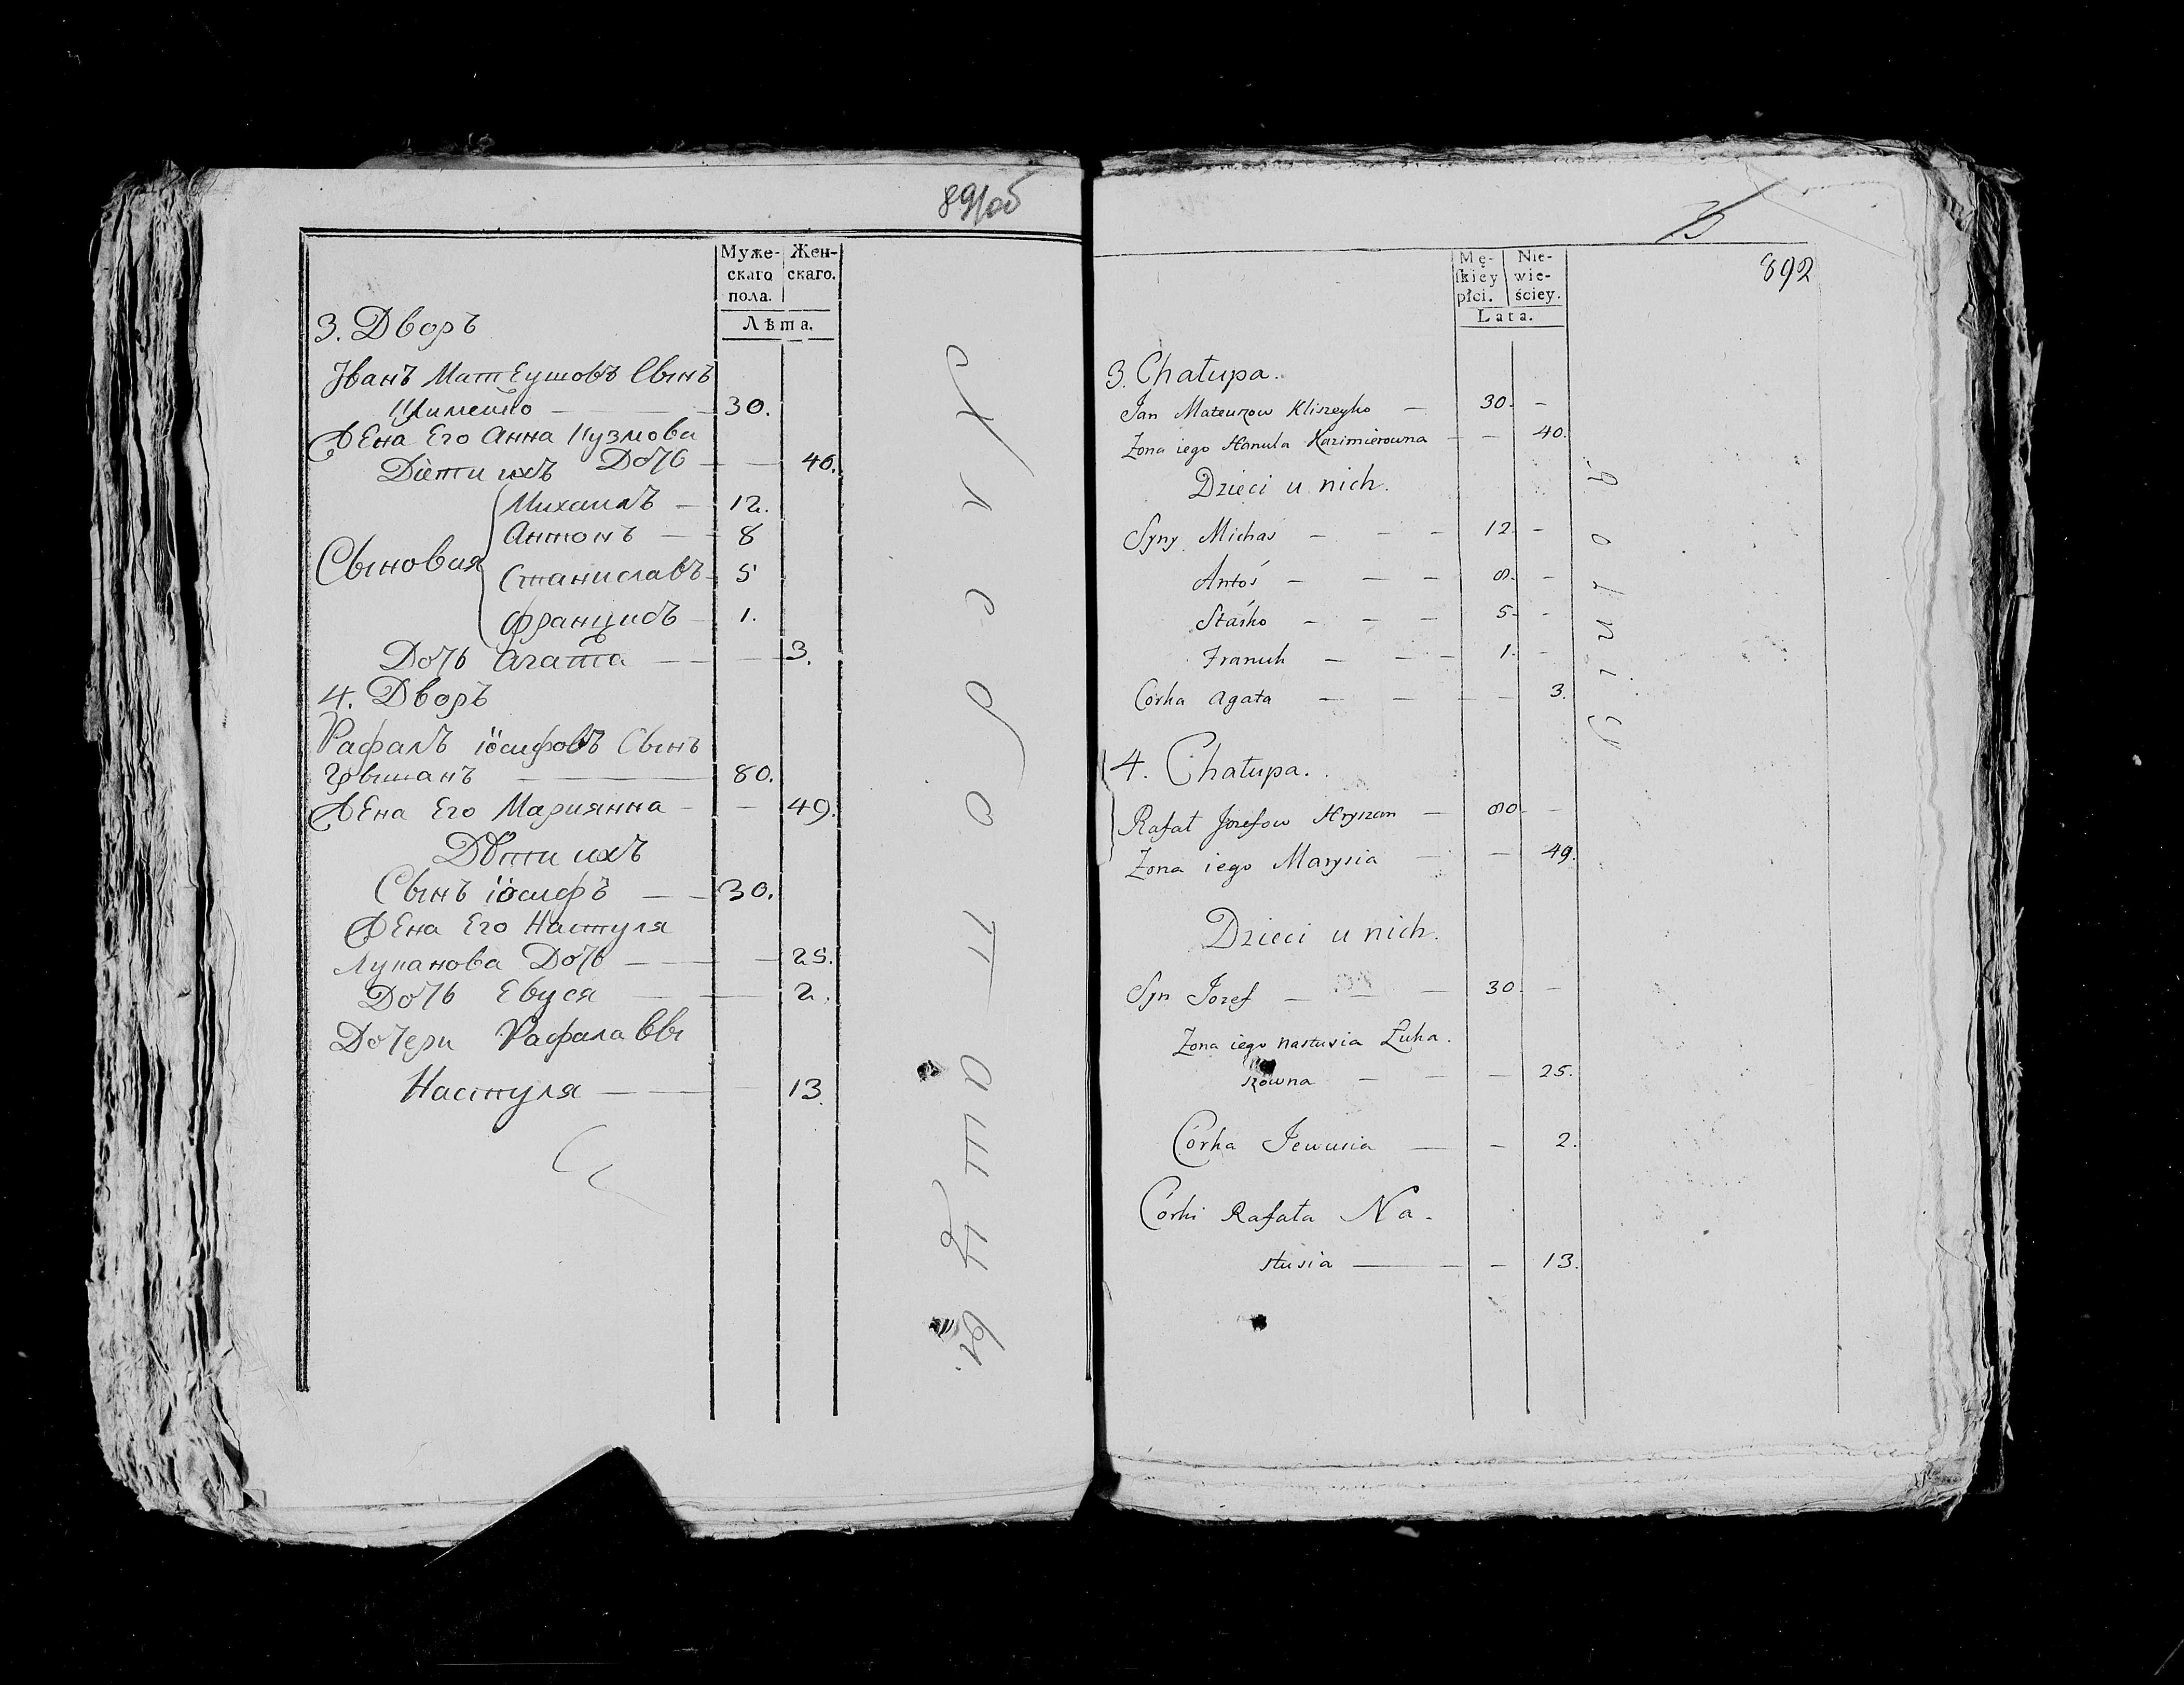 891об
Муже-
скаго
пола.
Жен-
скаго.
Лѣта.
3. Дворъ
Іванъ Матеушовъ Сынъ
30.
Жена Его Анна Кузмова
Дѣти ихъ Дочь — — 40.
Сыновая
Михаилъ — 12.
Антонъ — 8
Станиславъ 5
Францишъ 1.
Дочь Агата — — — 3.
4. Дворъ
Рафалъ іосифовъ Сынъ
Грышанъ — 80.
Жена Его Марианна — — 49.
Дѣти ихъ
Сынъ іосифъ — — 30.
Жена Его Настуля
Луканова Дочь — — — 25.
Дочь Евуся — — 2.
Дочери Рафаловы
Настуля — — — 13.
892
Mę-
skiey
płci.
Nie-
wie-
ściey.
Lata.
3. Chałupa.
Jan Mateuszow Kliszeyko — 30. —
Zona iego Hanula Kazimierowna — — 40.
Dzieci u nich.
Syny Michaś — — — 12. —
Antoś — — — 8. —
Staśko — — — 5. —
Franuk — — — 1. —
Córka Agata — — — — 3.
4. Chałupa.
Rafał Jozefow Hryszan — 80. —
Zona iego Marysia — — 49.
Dzieci u nich.
Syn Jozef — — — 30. —
Zona iego Nastusia Łuka.
szowna — — — 25.
Córka Jewusia — — 2.
Córki Rafała Na.
stusia — — 13.